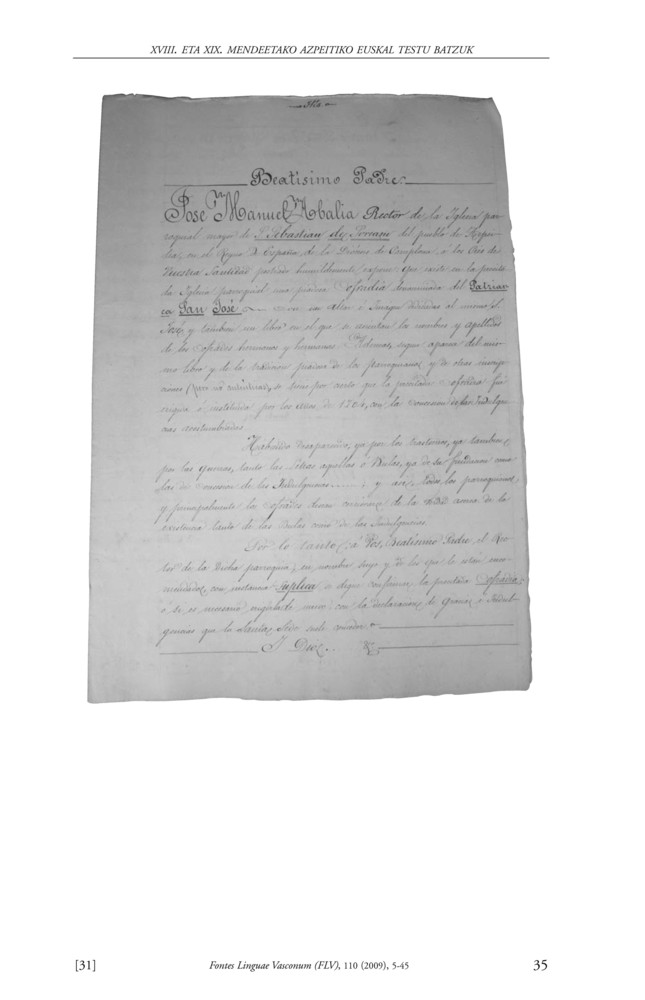 XVIII. ETA XIX. MENDEETAKO AZPEITIKO EUSKAL TESTU BATZUK
Beatisimo Padre:
Jose Manuel Abalia Rector de la Iglesia par-
roquial mayor de S. Sebastian de Soreasu del pueblo de Azpei-
tia, en el Reyno de España, de la Diócesis de Pamplona, á los Pies de
Vuestra Santidad postrado humildemente, expone: Que existe en la
la Iglesia parroquial una piadosa Cofradia denominada del Patriar-
ca San José con un altar é Imagen dedicadas al mismo S.
José, y tambien un libro en el que se los nombres y apellidos
de los Cofrades hermanos y hermanas. Ademas, segun aparece del mis-
mo libro y de la tradicion de los parroquianos, y de otras
se tiene por cierto que la Cofradia fué
erigida é instituida por los años de con la concesion de las Indulgen-
cias acostumbradas
Habiendo desaparecido, ya por los trastornos, ya tambien
por las guerras, tanto las Letras aquellas ó Bulas, ya de su fundacion como
las de concesion de las Indulgencias...... y asi, todos los parroquianos
y principalmente los Cofrades de la acerca de la
existencia tanto de las Bulas como de las Indulgencias.
Por lo tanto, á Vos, Beatisimo Padre el Rec-
tor de la Dicha parroquia, en nombre suyo y de los que le estan enco-
mendados, con instancia Suplica se digne confirmar la Cofradia,
ó si es necesario erigirla de nuevo, con la declaracion de Gracias é Indul-
gencias que la Santa Sede suele
[31]
Fontes Linguae Vasconum (FLV), 110 (2009), 5-45
35